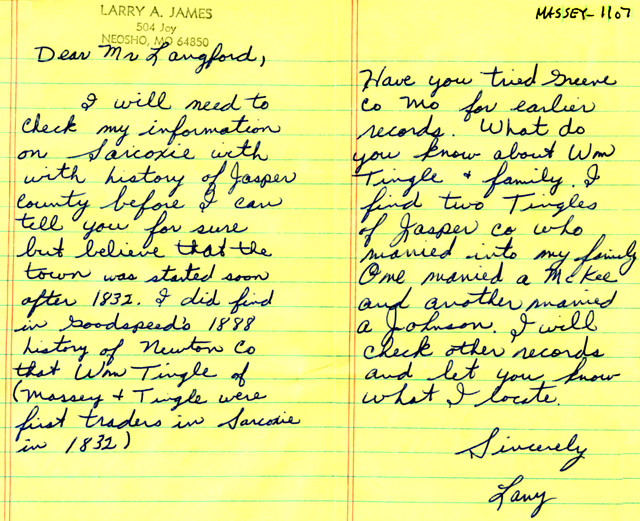 LARRY A. JAMES
504 Joy
NEOSHO, MO 64850
MASSEY-1107
Dear Mr Langford,
I will need to
check my information
on Sarcoxie with
with history of Jasper
county before I can
tell you for sure
but believe that the
town was started soon
after 1832. I did find
in Goodspeed's 1888
history of Newton Co
that Wm Tingle of
(Massey & Tingle were
first traders in Sarcoxie
in 1832)
Have you tried Greene
Co Mo for earlier
records. What do
you know about Wm
Tingle & family. I
find two Tingles
of Jasper co who
married into my family
One married a McKee
and another married
a Johnson. I will
check other records
and let you know
what I locate.
Sincerely
Larry